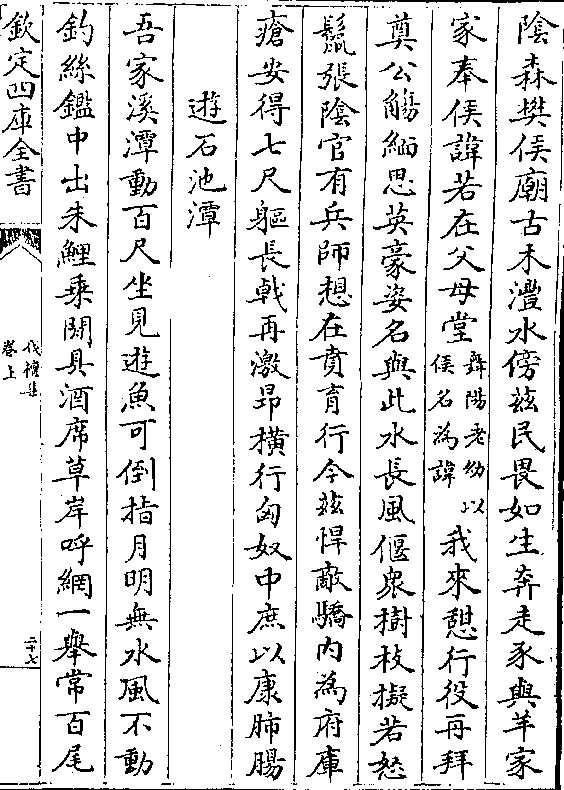 陰森樊侯廟古木灃水傍兹民畏如生奔走豕與羊家
家奉侯諱若在父母堂舞陽老幼以侯名為諱我來憇行役再拜
奠公觴緬思英豪姿名與此水長風偃衆樹枝擬若怒
鬛張陰官有兵師想在賁育行今兹悍敵驕内為府庫
瘡安得七尺軀長戟再激昂横行匈奴中庶以康肺腸
遊石池潭
吾家溪潭動百尺坐見遊魚可倒指月明無水風不動
釣絲鑑中出朱鯉乗閒具酒席草岸呼網一舉常百尾
欽定四庫全書
伐檀集
卷上
二十七